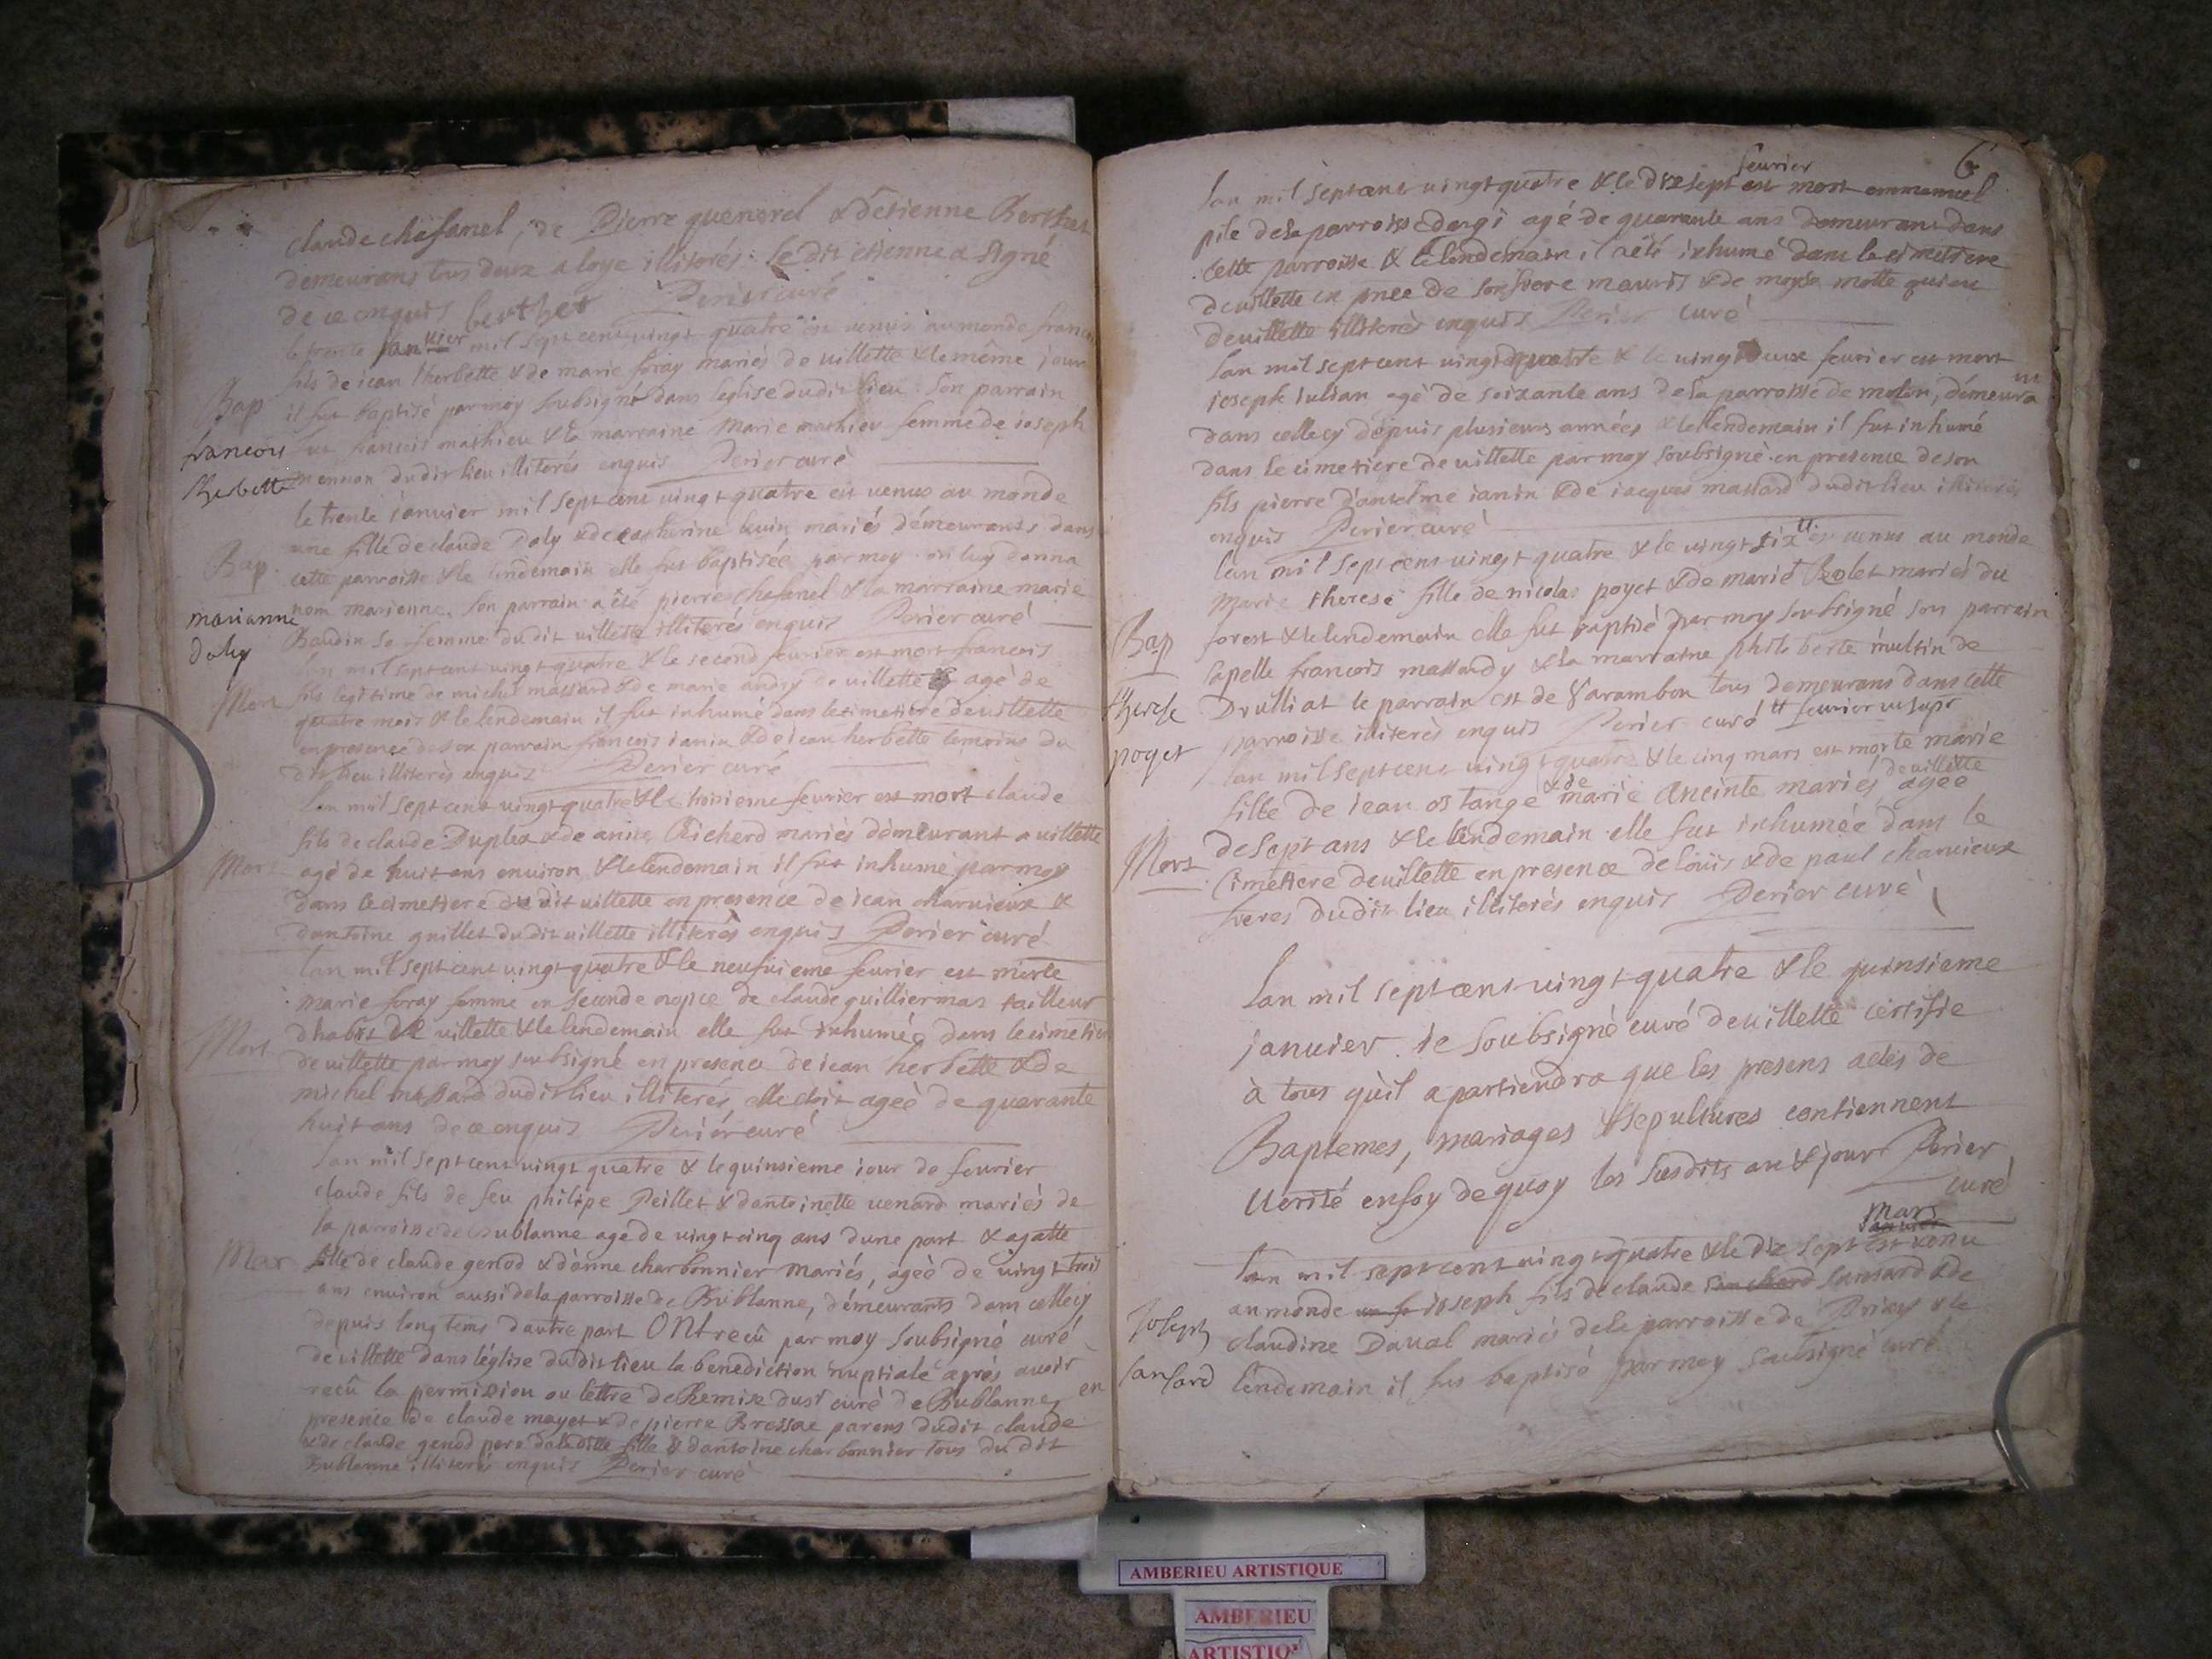 claude chafanel, de Pierre quenerel & détienne Berthet
demeurans tous deux a loye illiterés. Le dit etienne a signé
de ce enquis berthet Perier curé
le trente janvier mil sept cent vingt quatre est venus au monde francois
fils de iean lherbette & de marie foray mariés de villette & le même jour
Bap
il fut baptisé par moy soubsigné dans leglise dudit lieu. son parrain
francois
fut francois mathieu & la marraine Marie mathieu femme de ioseph
lherbette
dudit lieu illiterés enquis Perier curé
le trente ianvier mil sept cent vingt quatre est venus au monde
une fille de claude Doly & de catherine mariés démeurants dans
Bap
cette parroisse & le lendemain elle fut baptisée par moy on luy donna
marianne
nom marienne. son parrain a été pierre chafanel & la marraine marie
doly
Baudin sa femme dudit villette illiterés enquis Perier curé
lan mil sept cent vingt quatre & le second fevrier est mort francois
Mort
fils legitime de michel massard & de marie andry de villette agé de
quatre mois & le lendemain il fut inhumé dans le cimetiere de villette
en presence de son parrain francois ianin & de iean herbette temoins du
dit lieu illiterés enquis Perier curé
lan mil sept cent vingt quatre & le troisieme fevrier est mort claude
fils de claude Duplex & de anne Richerd mariés démeurant a villette
Mort
agé de huit ans environ & le lendemain il fut inhumé par moy
dans le cimetiere du dit villette en presence de iean charvieux &
dantoine guillet du dit villette illiterés enquis Perier curé
lan mil sept cent vingt quatre & le neufvieme fevrier est morte
marie foray femme en seconde nopce de claude guilliermas tailleur
Mort
dhabit de villette & le lendemain elle fut inhumée dans le cimetiere
de villette par moy soubsigné en presence de iean herbette & de
michel massard dudit lieu illiterés, elle étoit ageé de quarante
huit ans de ce enquis Perier curé
lan mil sept cent vingt quatre & le quinsieme iour de fevrier
claude fils de feu philipe Peillet & dantoinette venard mariés de
la parroisse de Bublanne agé de vingt cinq ans dune part & agatte
Mar
fille de claude genod & danne charbonnier mariés, ageé de vingt trois
ans environ aussi de la parroisse de Bublanne, démeurants dans celle cy
depuis long tems dautre part Ont recû par moy soubsigné curé
de villette dans léglise dudit lieu la benediction nuptiale aprés avoir
recû la permission ou lettre de Remise du sr curé de Bublanne, en
presence de claude mayet & de pierre Brossae parens dudit claude
& de claude genod pere de la dite fille & dantoine charbonnier tous du dit
Bublanne illiterés enquis Perier curé
6
fevrier
lan mil sept cent vingt quatre & le dix sept est mort emmanuel
pile de la parroisse dargi agé de quarante ans demeurans dans
cette parroisse & le lendemain il a été inhumé dans le cimetiere
de villette en pnce de son frere mauris & de moyse motte
de villette illiterés enquis Perier curé
lan mil sept cent vingt quatre & le vingt deux fevrier est mort
ioseph iulian agé de soixante ans de la parroisse de molon, démeurant
dans celle cy depuis plusieurs années & le lendemain il fut inhumé
dans le cimetiere de villette par moy soubsigné en presence de son
fils pierre danselme ianin & de iacques massard dudit lieu illiterés
enquis Perier curé
lan mil sept cent vingt quatre & le vingt six tt est venus au monde
Marie therese fille de nicolas poyet & de marie Bolet mariés du
Bap
forest & le lendemain elle fut baptisé par moy soubsigné son parrain
sapelle francois massardy & la marraine philiberte multin de
therese
Druillat le parrain est de Varambon tous demeurans dans cette
poyet
parroisse illiterés enquis Perier curé tt fevrier ut supr
lan mil sept cent vingt quatre & le cinq mars est morte marie
fille de iean ostange & de marie aneinte mariés de villette agée
Mort
de sept ans & le lendemain elle fut inhumée dans le
cimetiere de villette en presence de loüis & de paul charvieux
freres dudit lieu illiterés enquis Perier curé
Lan mil sept cent vingt quatre & le quinsieme
janvier ie soubsigné curé de villette certifie
à tous quil apartiendra que les presens actes de
Baptemes, mariages & sepultures contiennent
Verité en foy de quoy les susdits an & jour Perier
curé
mars
lan mil sept cent vingt quatre & le dix sept est venu
au monde ioseph fils de claude sansard & de
Joseph
claudine Daval mariés de la parroisse de Priay & le
sansard
lendemain il fut baptisé par moy soubsigné curé
AMBERIEU ARTISTIQUE
AMBERIEU
ARTISTIQ